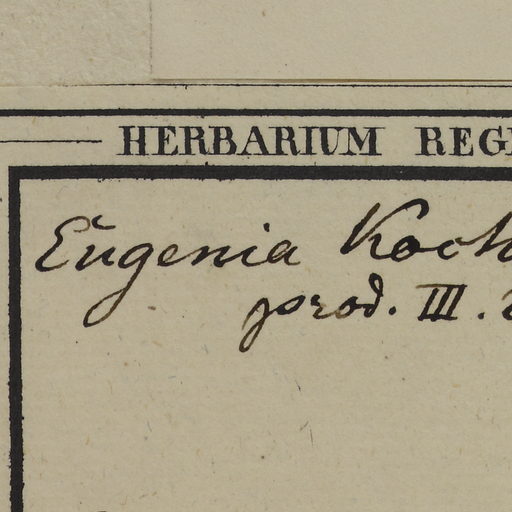 HERBARIUM REG
Eugenia Koch
prod. III.